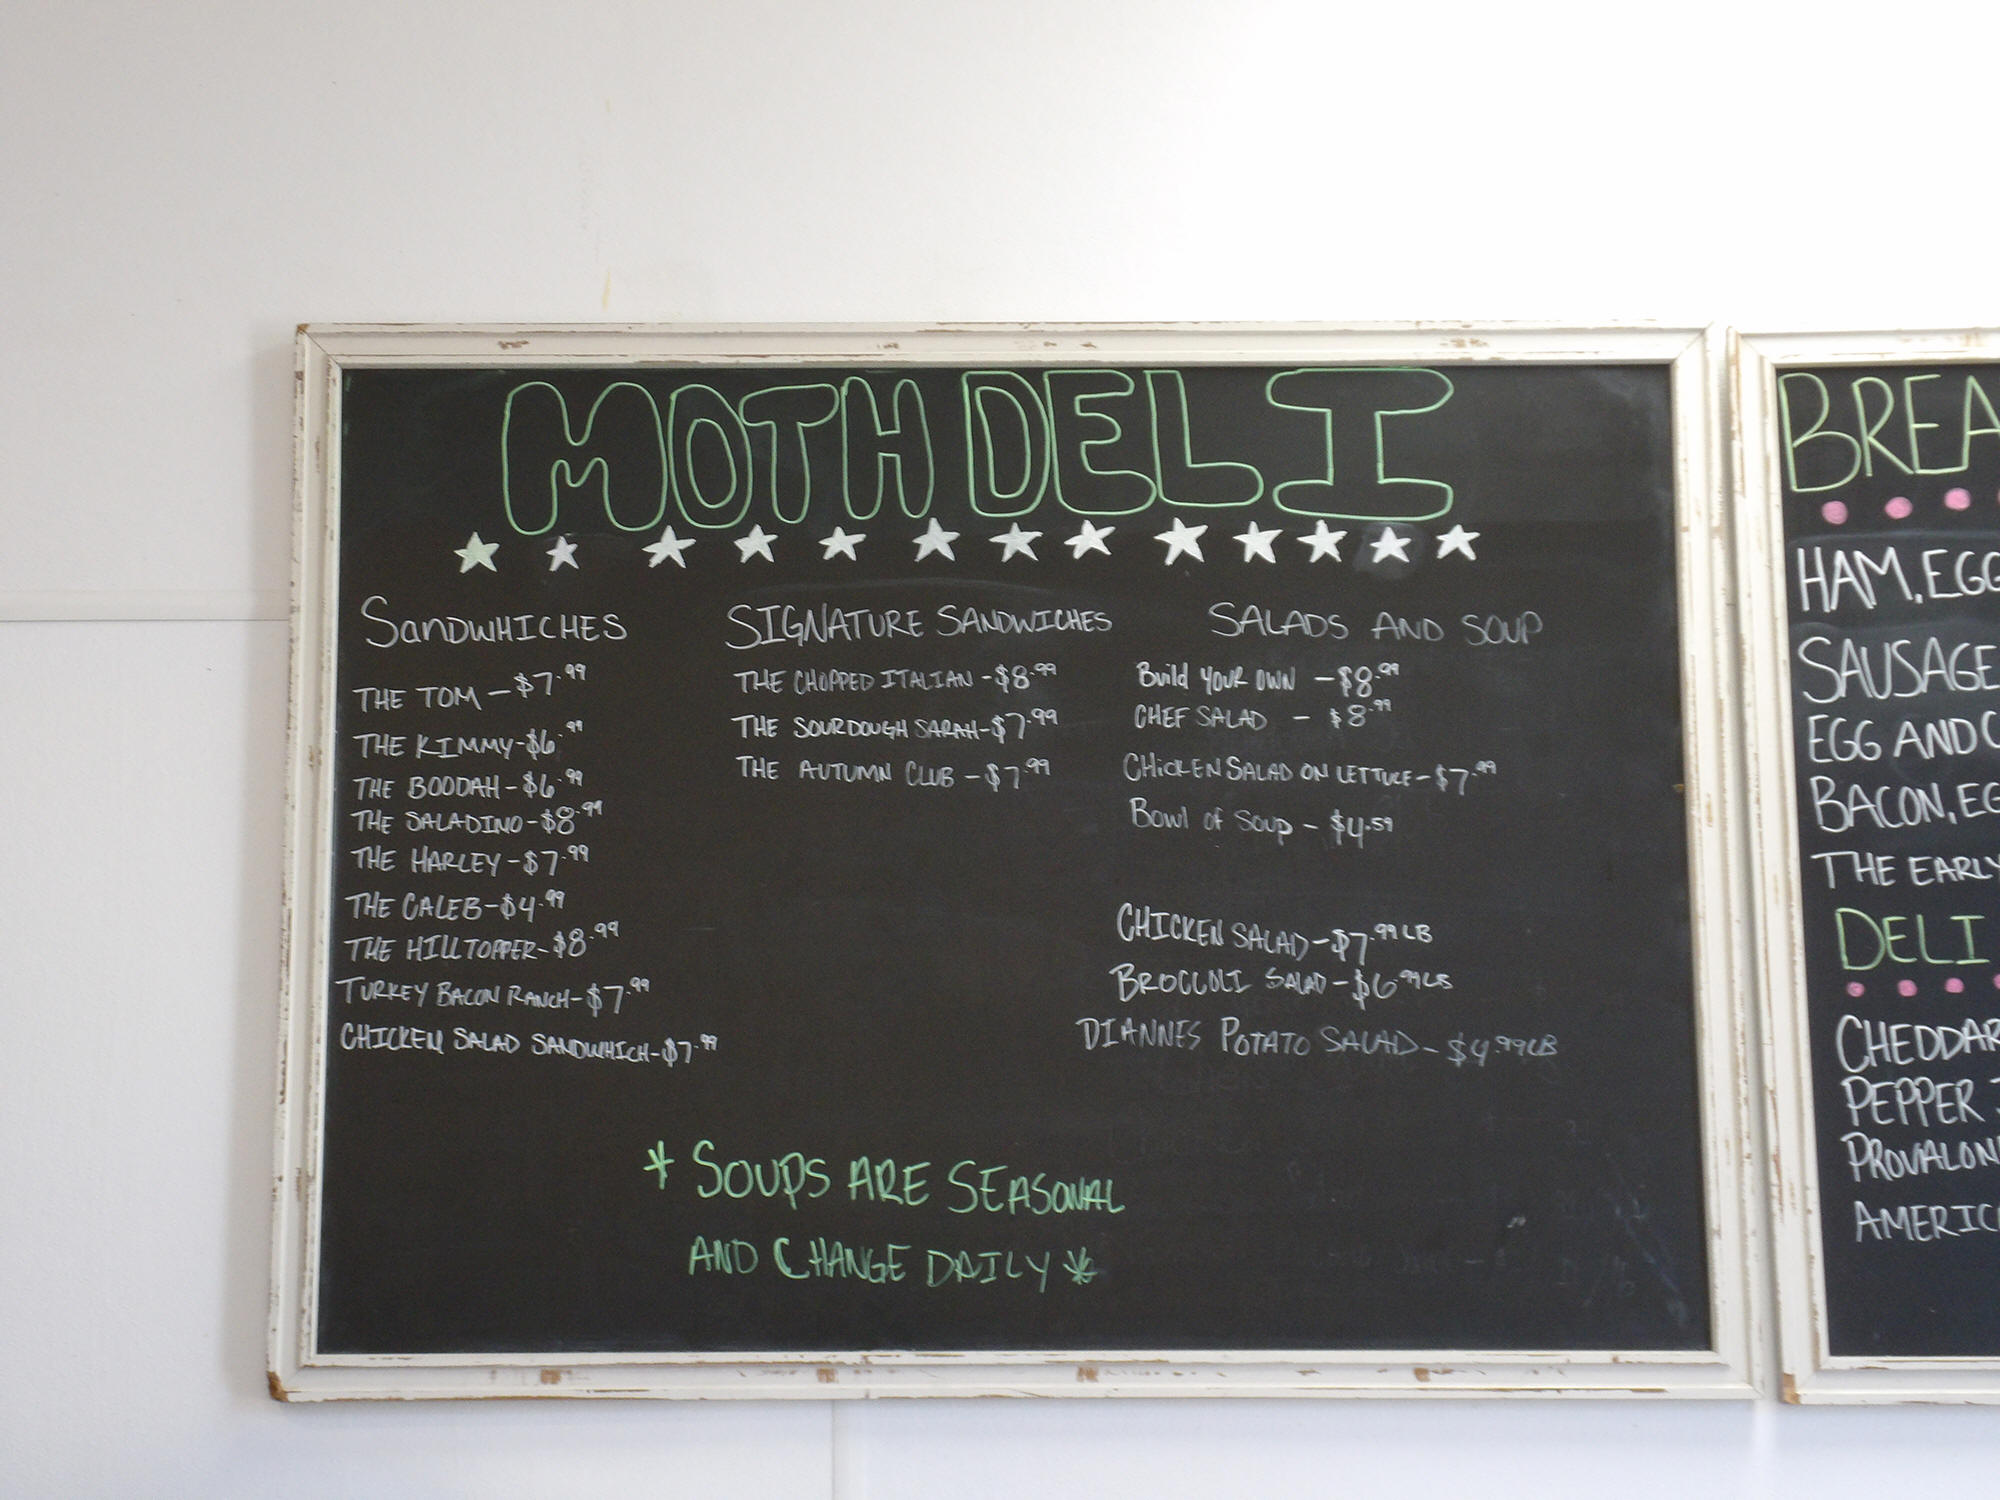 MOTH DELI
SANDWHICHES
THE TOM - $7.99
THE KIMMY - $6.99
THE BOODAH - $6.99
THE SALADINO - $8.99
THE HARLEY - $7.99
THE CALEB - $4.99
THE HILLTOPPER - $8.99
TURKEY BACON RANCH - $7.99
CHICKEN SALAD SANDWHICH - $7.99
SIGNATURE SANDWICHES
THE CHOPPED ITALIAN - $8.99
THE SOURDOUGH SARAH - $7.99
THE AUTUMN CLUB - $7.99
SALADS AND SOUP
Build YOUR OWN - $8.99
CHEF SALAD - $8.99
CHICKEN SALAD ON LETTUCE - $7.99
Bowl of Soup - $4.59
CHICKEN SALAD - $7.99 LB
BROCCOLI SALAD - $6.99 LB
DIANNES POTATO SALAD - $4.99 LB
* SOUPS ARE SEASONAL
AND CHANGE DAILY *
BREA
HAM, EGG
SAUSAGE
EGG AND C
BACON, EG
THE EARLY
DELI
CHEDDAR
PEPPER J
PROVALON
AMERIC